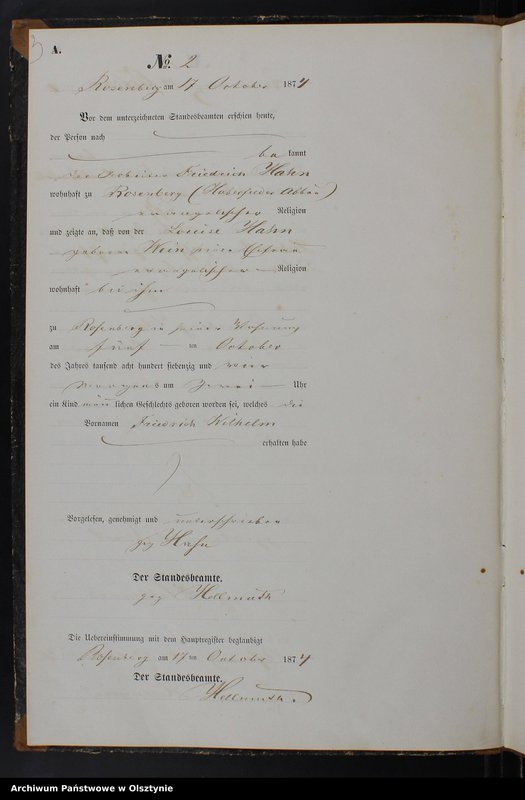 3
A.
No. 2
Rosenberg am 17 October 1874
Vor dem unterzeichneten Standesbeamten erschien heute,
der Person nach
bekannt
Friedrich Hahn
wohnhaft zu Rosenberg
evangelischer Religion
und zeigte an, daß von der Louise Hahn
geborene seiner Ehefrau
evangelischer Religion
wohnhaft bei ihm
zu Rosenberg in seiner Wohnung
am fünf ten October
des Jahres tausend acht hundert siebenzig und vier
Morgens um Uhr
ein Kind männlichen Geschlechts geboren worden sei, welches die
Vornamen Friedrich Wilhelm
erhalten habe
Vorgelesen, genehmigt und unterschrieben
gez Hahn
Der Standesbeamte.
gez Hellmuth
Die Uebereinstimmung mit dem Hauptregister beglaubigt
Rosenberg am 17 ten October 1874
Der Standesbeamte.
Hellmuth.
Archiwum Państwowe w Olsztynie